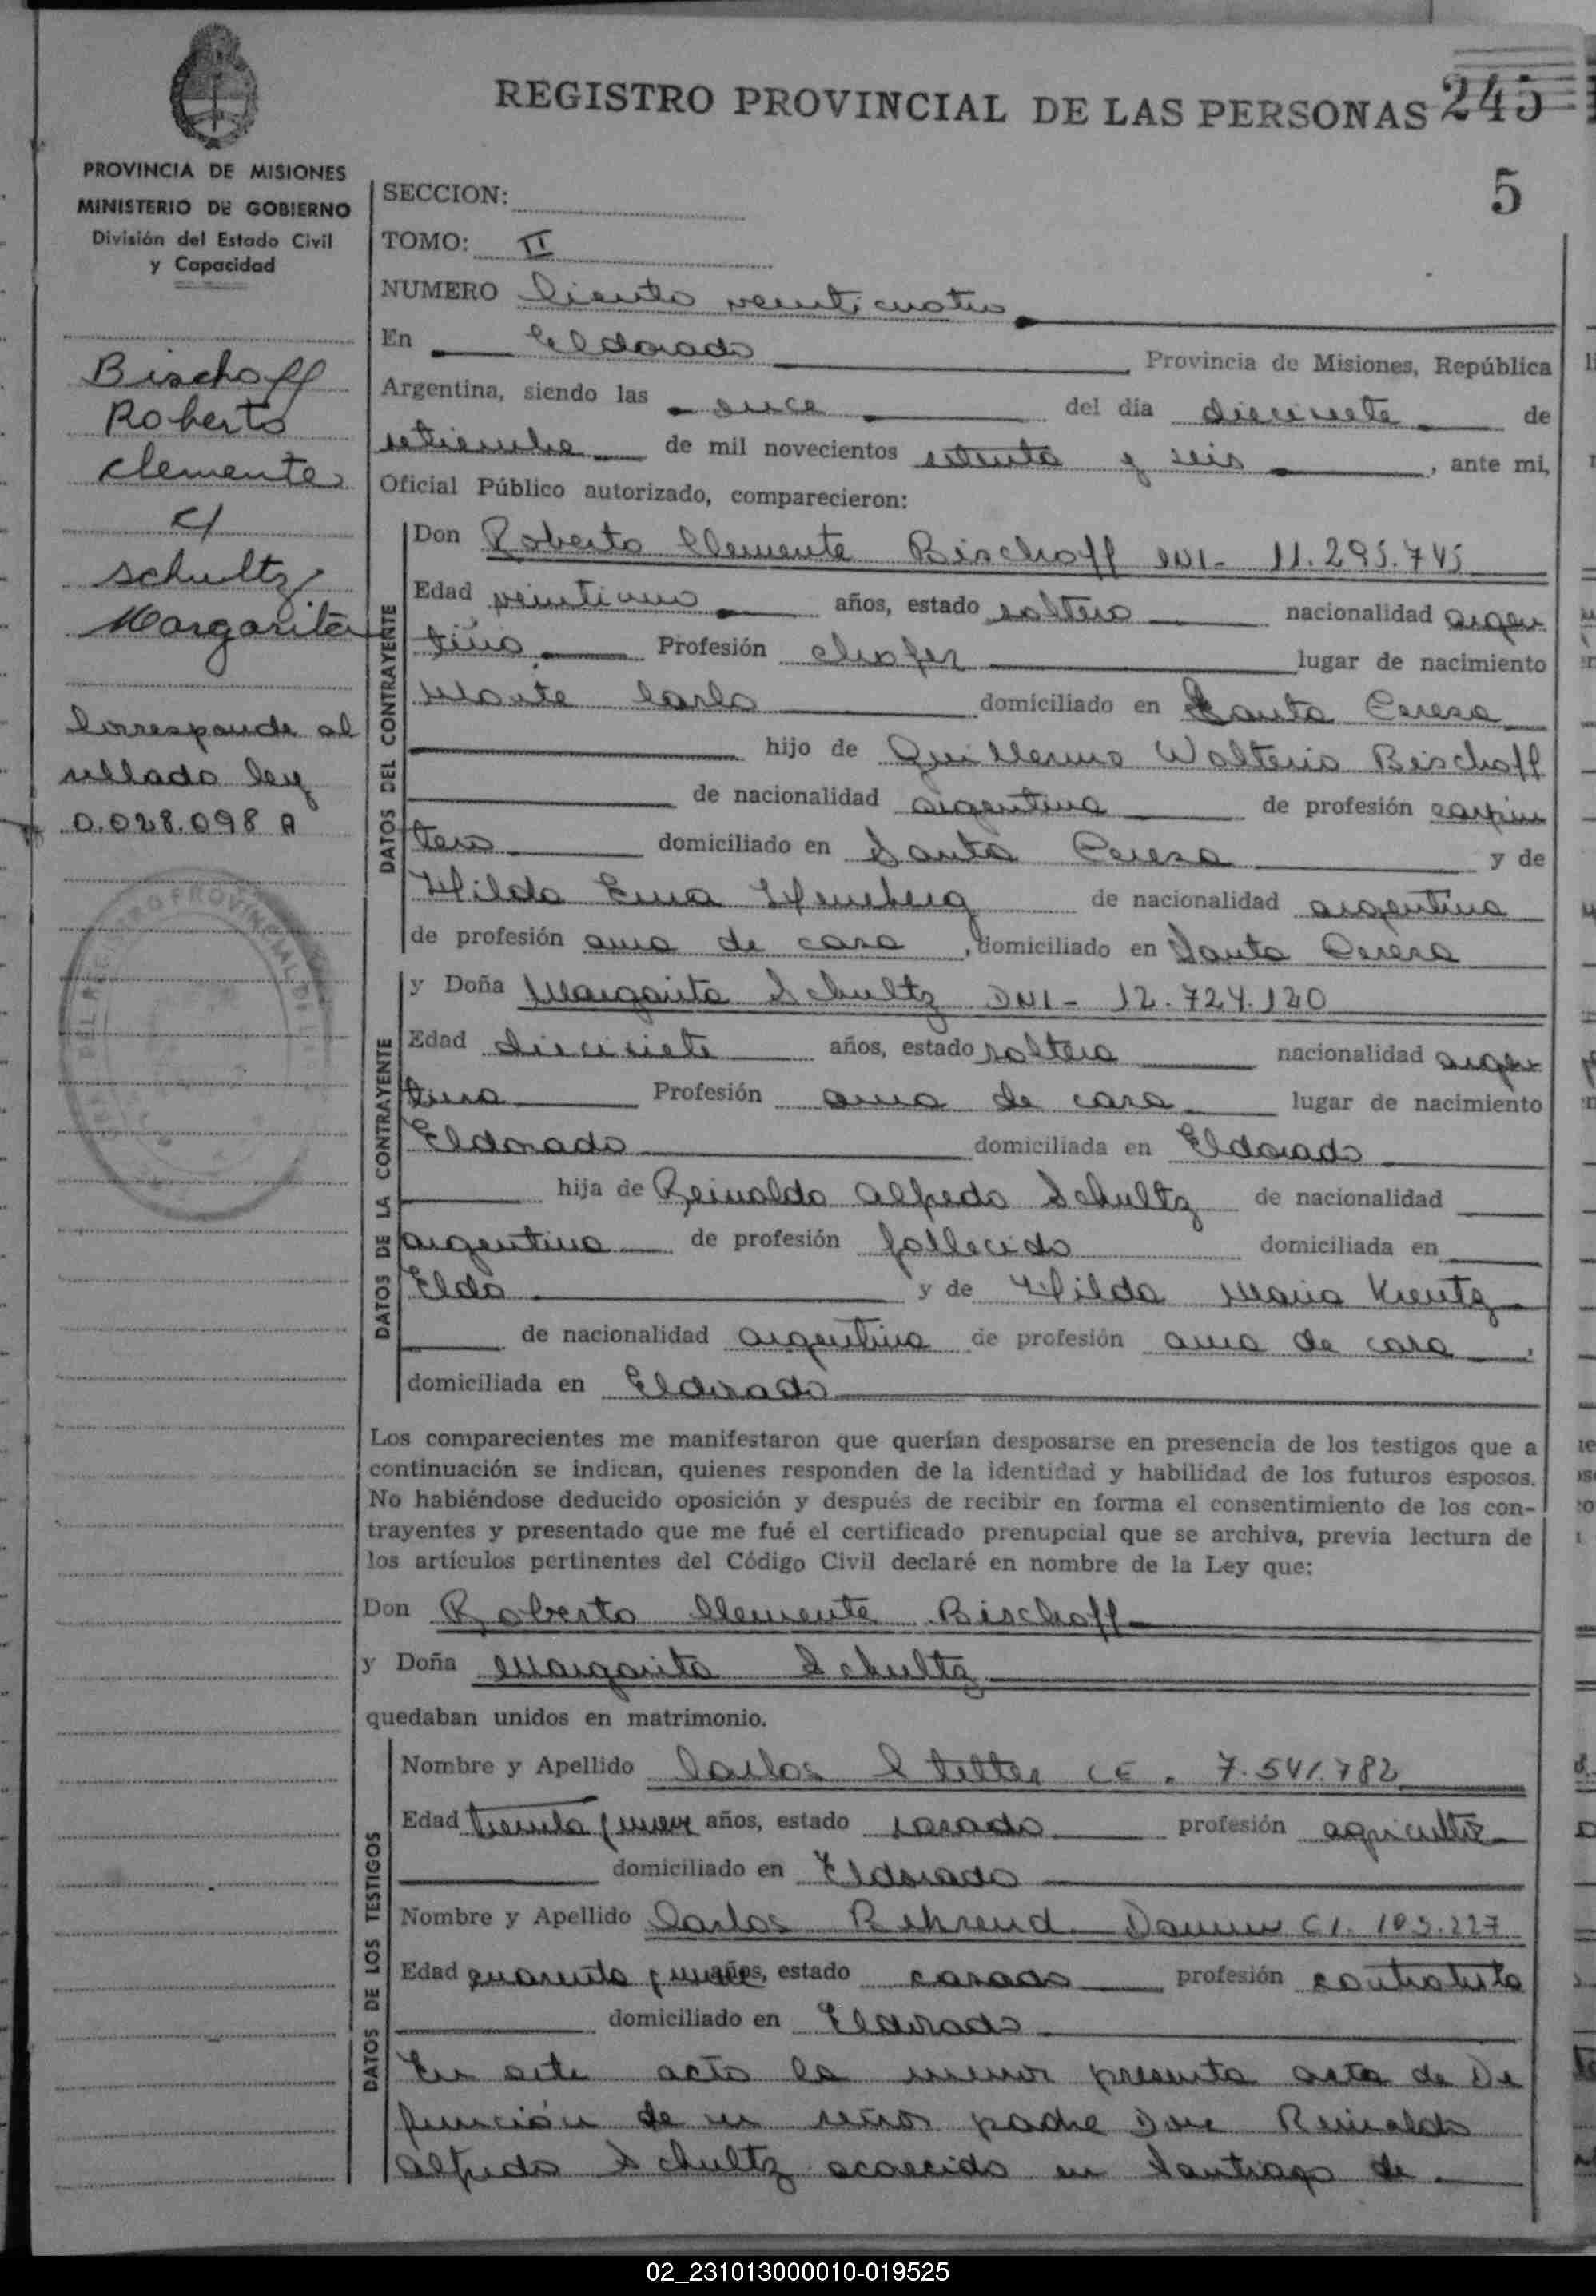 REGISTRO PROVINCIAL DE LAS PERSONAS 245
5
PROVINCIA DE MISIONES
MINISTERIO DE GOBIERNO
División del Estado Civil
y Capacidad
Bischoff
Roberto
Clemente
c/
Schultz
Margarita
Corresponde al
sellado ley
0.028.098 A
SECCION:
TOMO: II
NUMERO Ciento veinticuatro
En Eldorado Provincia de Misiones, República
Argentina, siendo las once del día diecisiete de
setiembre de mil novecientos setenta y seis, ante mi,
Oficial Público autorizado, comparecieron:
DATOS DEL CONTRAYENTE
Don Roberto Clemente Bischoff DNI- 11.295.745
Edad veintiuno años, estado soltero nacionalidad argen
tina Profesión chofer lugar de nacimiento
Monte Carlo domiciliado en Santa Teresa
hijo de Guillermo Walterio Bischoff
de nacionalidad argentina de profesión carpin
tero domiciliado en Santa Teresa y de
Hilda Ema de nacionalidad argentina
de profesión ama de casa, domiciliado en Santa Teresa
DATOS DE LA CONTRAYENTE
y Doña Margarita Schultz DNI- 12.724.120
Edad diecisiete años, estado soltera nacionalidad argen
tina Profesión ama de casa lugar de nacimiento
Eldorado domiciliada en Eldorado
hija de Reinaldo Alfredo Schultz de nacionalidad
argentina de profesión fallecido domiciliada en
Eldo y de Hilda Maria Krentz
de nacionalidad argentina de profesión ama de casa,
domiciliada en Eldorado
Los comparecientes me manifestaron que querían desposarse en presencia de los testigos que a
continuación se indican, quienes responden de la identidad y habilidad de los futuros esposos.
No habiéndose deducido oposición y después de recibir en forma el consentimiento de los con-
trayentes y presentado que me fué el certificado prenupcial que se archiva, previa lectura de
los artículos pertinentes del Código Civil declaré en nombre de la Ley que:
Don Roberto Clemente Bischoff
y Doña Margarita Schultz
quedaban unidos en matrimonio.
DATOS DE LOS TESTIGOS
Nombre y Apellido Carlos Stetter LE. 7.541.782
Edad treinta y nueve años, estado casado profesión agricultor
domiciliado en Eldorado
Nombre y Apellido Carlos Behrend CI. 103.227
Edad cuarenta y nueve años, estado casado profesión contratista
domiciliado en Eldorado
En este acto la menor presenta acta de De
función de su señor padre Don Reinaldo
Alfredo Schultz acaecido en Santiago de
02_231013000010-019525